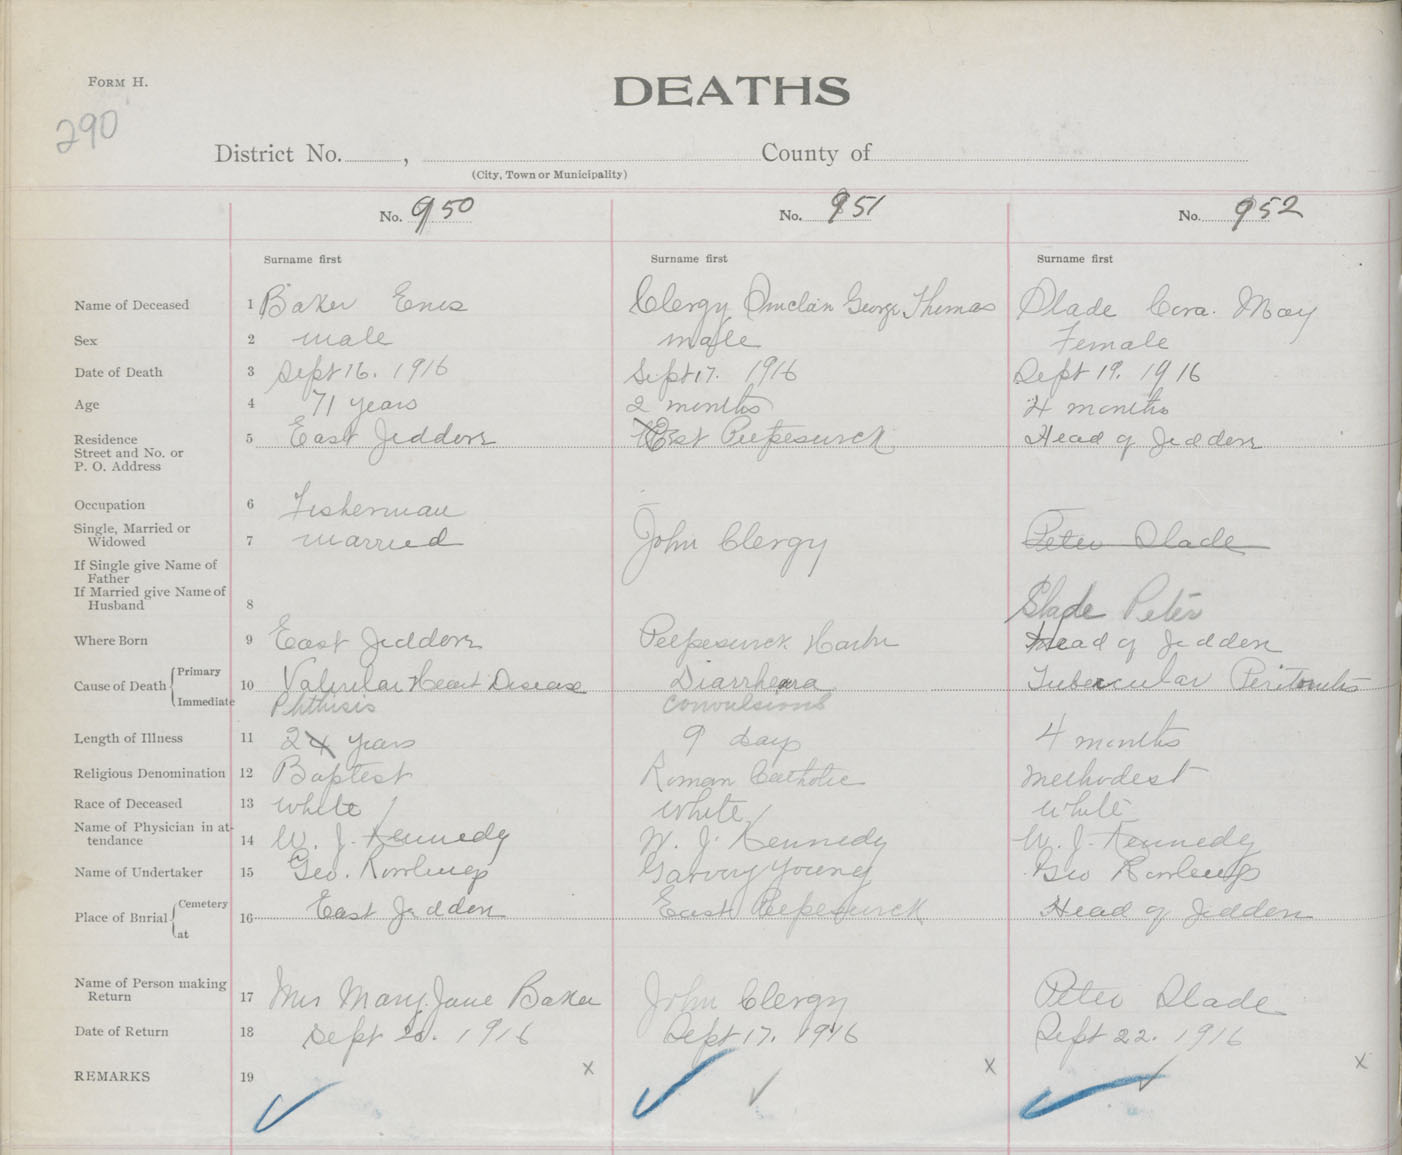 FORM H.
DEATHS
290
District No. , County of
(City, Town or Municipality)
No. 950 No. 951 No. 952
Surname first Surname first Surname first
Name of Deceased 1 Baker Enes Clergy George Thomas Slade Cora. May
Sex 2 male male Female
Date of Death 3 Sept 16. 1916 Sept 17. 1916 Sept 19. 1916
Age 4 71 years 2 months 4 months
Residence 5 East Jeddore East Petpeswick Head of Jeddore
Street and No. or
P. O. Address
Occupation 6 Fisherman
Single, Married or
Widowed 7 married John Clergy Peter Slade
If Single give Name of
Father
If Married give Name of
Husband 8 Slade Peter
Where Born 9 East Jeddore Petpeswick Harbr Head of Jeddore
Cause of Death Primary 10 Valvular Heart Disease Diarrhea Tubercular Peritonitis
Immediate Phthisis Convulsions
Length of Illness 11 2 years 9 days 4 months
Religious Denomination 12 Baptest Roman Catholic Methodest
Race of Deceased 13 white white white
Name of Physician in at-
tendance 14 W. J. Kennedy W. J. Kennedy W. J. Kennedy
Name of Undertaker 15 Geo. Rowlings Young Geo Rowlings
Place of Burial Cemetery 16 East Jeddore East Petpeswick Head of Jeddore
at
Name of Person making
Return 17 Mrs Mary Jane Baker John Clergy Peter Slade
Date of Return 18 Sept 20. 1916 Sept 17. 1916 Sept 22. 1916
REMARKS 19 x x x